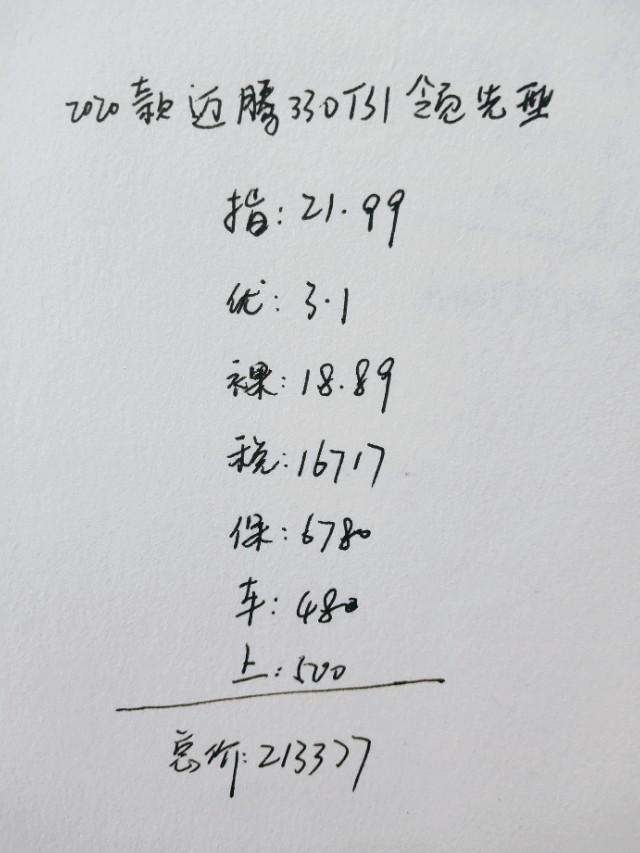 2020款迈腾330TSI领先型
指:21.99
优:3.1
裸:18.89
税:16717
保:6780
车:480
上:500
总价:213377